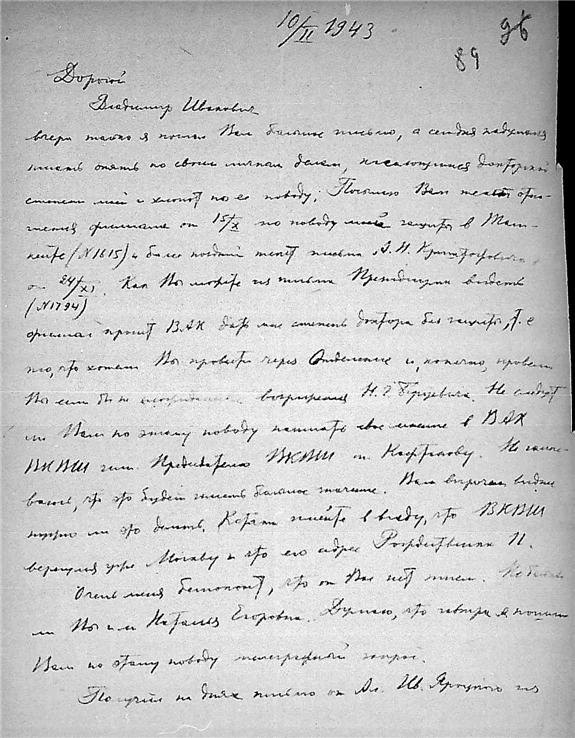 10/II 1943
96
89
Дорогой
Владимир Иванович
вчера только я послал Вам большое письмо, а сегодня
писать опять по своим личным делам, касающимся докторской
степени моей и хлопот по ее поводу; Посылаю Вам текст
филиала от 15/X по поводу моей защиты в Таш-
кенте (N 1615) и более поздний текст письма А.Н. Криштофовича
от 24/XI. Как Вы можете из письма Президиума видеть
(N 1794)
филиал просит ВАК дать мне степень доктора без защиты, т.е
то, что хотели Вы провести через Отделение и, конечно, провели
Вы если бы не возражения Н. Г. Не следует
ли Вам по этому поводу написать свое мнение в ВАК
ВКВШ или Председателю ВКВШ т. Кафтанову. Не
ваюсь, что это будет иметь большое значение. Вам впрочем, виднее
нужно ли это делать. Кстати имейте в виду, что ВКВШ
вернулся уже Москву и что его адрес Рождественка 11.
Очень меня беспокоит, что от Вас нет писем. Не больны
ли Вы или Наталья Егоровна. Думаю, что завтра я пошлю
Вам по этому поводу телеграфный запрос.
Получил на днях письмо от Ал. Ив. из